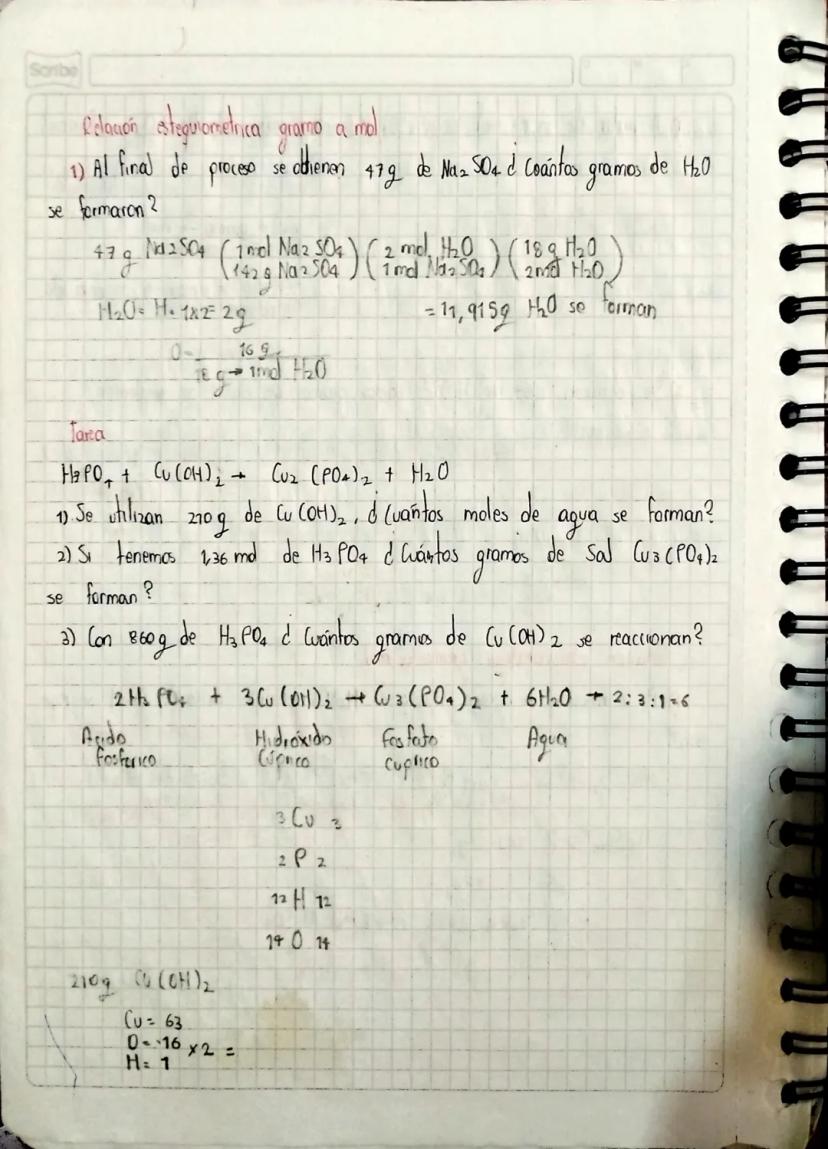 Scribe
Relación estequiometrica gramo a mol
1) Al final de proceso se obtienen 47g de Na2SO4 ¿ Cuántos gramos de H2O
se formaron?
47g Na2SO4 (1mol Na2SO4 / 142g Na2SO4) (2 mol H2O / 1mol Na2SO4) (18g H2O / 2mol H2O)
H2O= H= 1x2= 2g = 11,915g H2O se forman
O= 16g
18g → 1mol H2O
Tarea
H3PO4 + Cu(OH)2 → Cu2 (PO4)2 + H2O
1) Se utilizan 210g de Cu(OH)2, ¿ Cuántos moles de agua se forman?
2) Si tenemos 1,36 mol de H3PO4 ¿ Cuántos gramos de Sal Cu3(PO4)2
se forman?
3) Con 860g de H3PO4 ¿ Cuántos gramos de Cu(OH)2 se reaccionan?
2H3PO4 + 3Cu(OH)2 → Cu3(PO4)2 + 6H2O → 2:3:1=6
Acido Hidróxido Fosfato Agua
Fosforico Cúprico Cuprico
3 Cu 3
2 P 2
12 H 12
14 O 14
210g Cu(OH)2
Cu= 63
O= 16 x2 =
H= 1